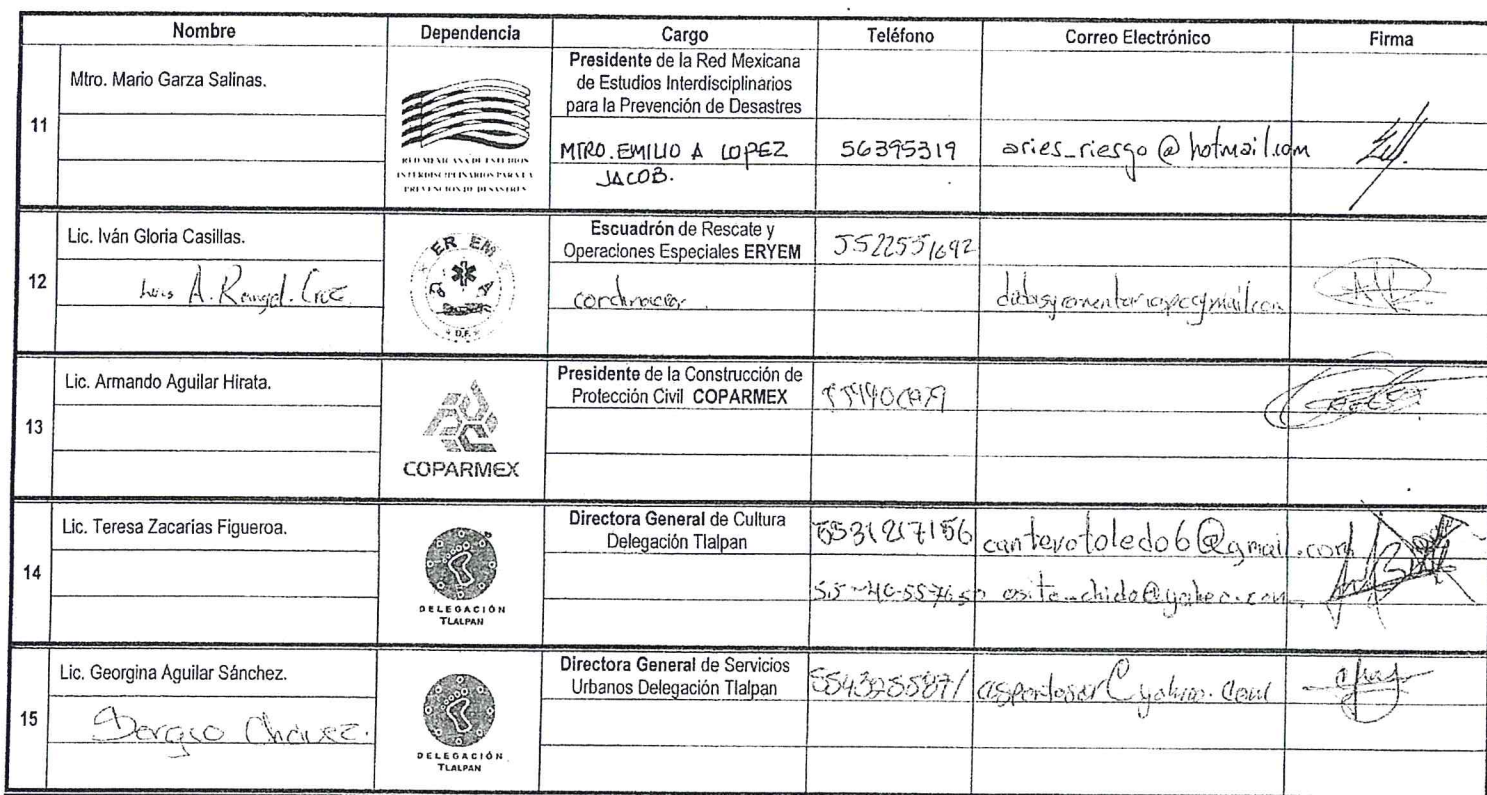 Nombre Dependencia Cargo Teléfono Correo Electrónico Firma
11
Mtro. Mario Garza Salinas.
RED MEXICANA DE ESTUDIOS
INTERDISCIPLINARIOS PARA LA
PREVENCIÓN DE DESASTRES
Presidente de la Red Mexicana
de Estudios Interdisciplinarios
para la Prevención de Desastres
MTRO. EMILIO A LOPEZ
JACOB.
56395319
aries_riesgo@hotmail.com
12
Lic. Iván Gloria Casillas.
Luis A. Rangel. Cruz
ER EM
D.F.
Escuadrón de Rescate y
Operaciones Especiales ERYEM
5522551692
13
Lic. Armando Aguilar Hirata.
COPARMEX
Presidente de la Construcción de
Protección Civil COPARMEX
14
Lic. Teresa Zacarias Figueroa.
DELEGACIÓN
TLALPAN
Directora General de Cultura
Delegación Tlalpan
5531217156
canterotoledo6@gmail.com
15
Lic. Georgina Aguilar Sánchez.
Sergio Chávez.
DELEGACIÓN
TLALPAN
Directora General de Servicios
Urbanos Delegación Tlalpan